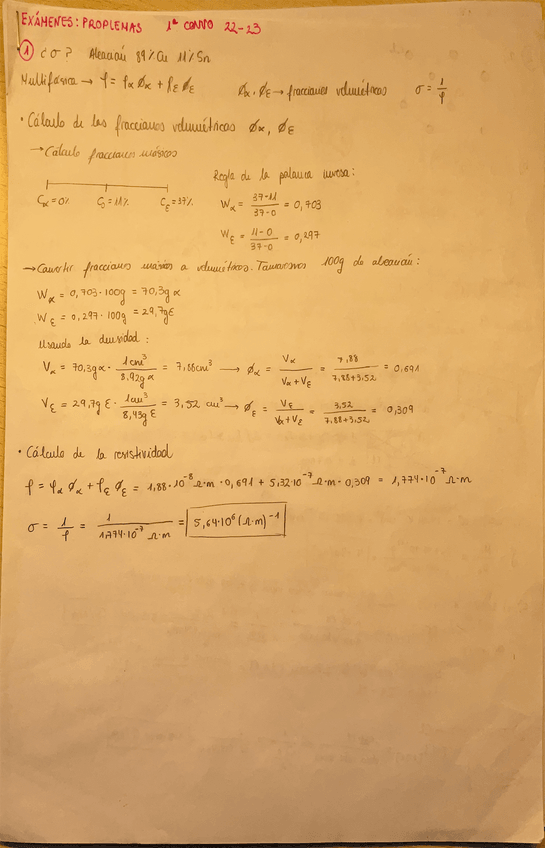 EXÁMENES: PROBLEMAS 1ª CONVO 22-23
① ¿σ? Aleación 89% Cu 11% Sn
Multifásica → ρ = ρα Øα + ρε Øε Øα, Øε → fracciones volumétricas σ = 1/ρ
• Cálculo de las fracciones volumétricas Øα, Øε
→ Cálculo fracciones másicas
Regla de la palanca inversa:
Cα = 0% C₀ = 11% Cε = 37%
Wα = (37-11)/(37-0) = 0,703
Wε = (11-0)/(37-0) = 0,297
→ Convertir fracciones másicas a volumétricas. Tomaremos 100g de aleación:
Wα = 0,703·100g = 70,3g α
Wε = 0,297·100g = 29,7g ε
Usando la densidad:
Vα = 70,3g α · 1cm³/8,92g α = 7,88cm³ → Øα = Vα/(Vα+Vε) = 7,88/(7,88+3,52) = 0,691
Vε = 29,7g ε · 1cm³/8,43g ε = 3,52 cm³ → Øε = Vε/(Vα+Vε) = 3,52/(7,88+3,52) = 0,309
• Cálculo de la resistividad
ρ = ρα Øα + ρε Øε = 1,88·10⁻⁸ Ω·m · 0,691 + 5,32·10⁻⁷ Ω·m · 0,309 = 1,774·10⁻⁷ Ω·m
σ = 1/ρ = 1/(1,774·10⁻⁷ Ω·m) = 5,64·10⁶ (Ω·m)⁻¹